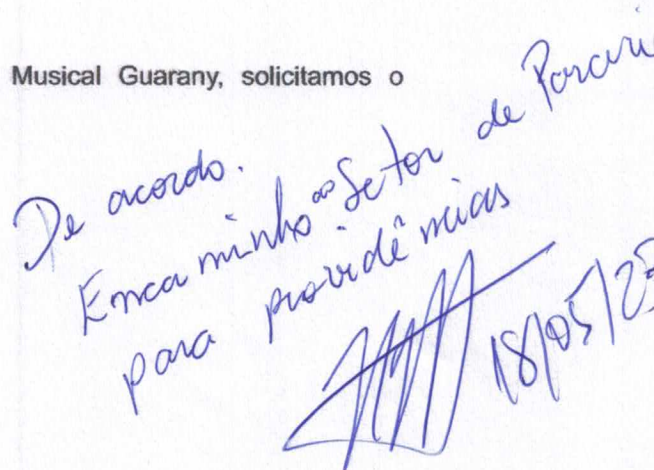 Musical Guarany, solicitamos o
De acordo.
Encaminho ao Setor de
para providências
18/05/23